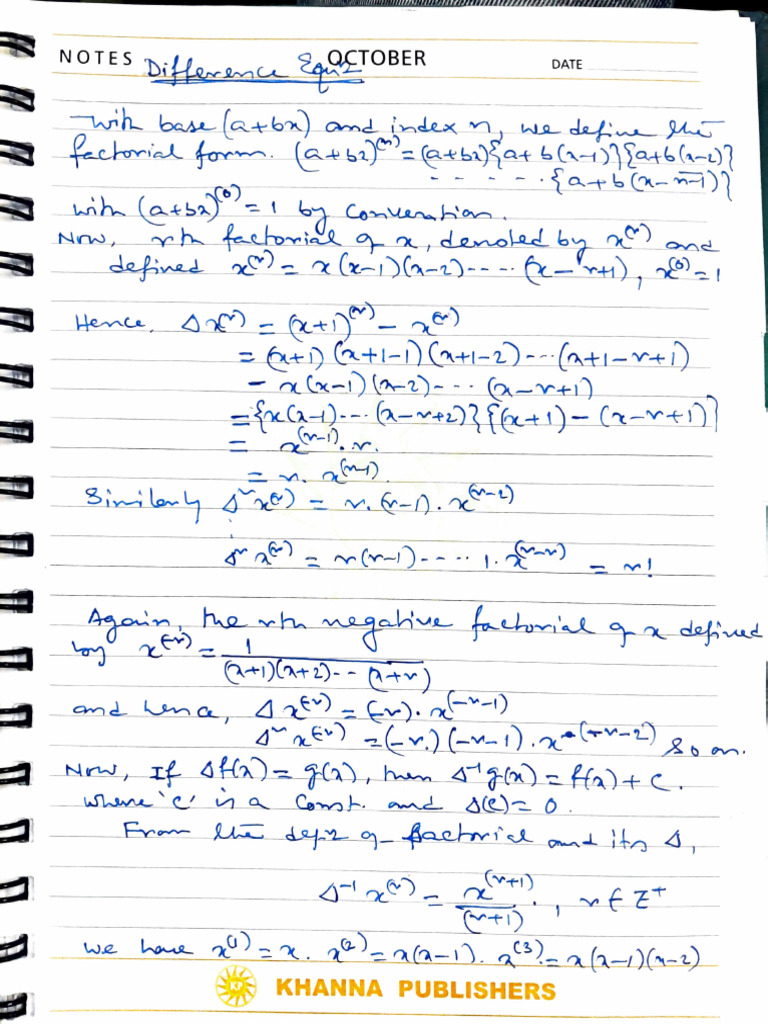 NOTES OCTOBER DATE
Difference Eqn
With base (a+bx) and index n, we define the
factorial form. (a+bx)^(n) = (a+bx){a+b(x-1)}{a+b(x-2)}
- - - - - - - {a+b(x-n-1)}
with (a+bx)^(0) = 1 by Convention.
Now, rth factorial of x, denoted by x^(r) and
defined x^(r) = x(x-1)(x-2)----- (x-r+1), x^(0)=1
Hence, Δx^(r) = (x+1)^(r) - x^(r)
= (x+1)(x+1-1)(x+1-2)---(x+1-r+1)
- x(x-1)(x-2)---- (x-r+1)
= {x(x-1)--- (x-r+2)}{(x+1)-(x-r+1)}
= x^(r-1).r.
= r. x^(r-1).
Similarly Δ²x^(r) = r.(r-1).x^(r-2)
⋮
Δ^r x^(r) = r(r-1)-----1.x^(r-r) = r!
Again, the rth negative factorial of x defined
by x^(-r) = 1/((x+1)(x+2)--(x+r))
and hence, Δx^(-r) = (-r).x^(-r-1)
Δ²x^(-r) = (-r.)(-r-1).x^(-r-2) so on.
Now, If Δf(x) = g(x), then Δ^-1 g(x) = f(x)+c.
where 'c' is a Const. and Δ(c)=0.
From the defn of factorial and its Δ,
Δ^-1 x^(r) = x^(r+1)/(r+1)., r ∈ Z^+
We have x^(1) = x. x^(2) = x(x-1). x^(3) = x(x-1)(x-2)
KHANNA PUBLISHERS